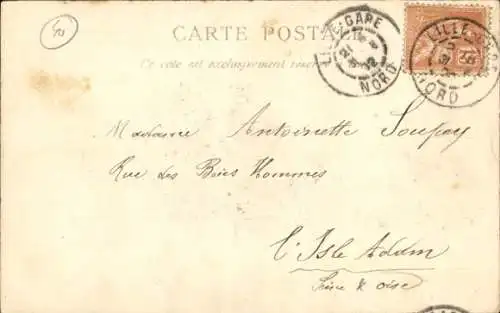 CARTE POSTA
Ce côté est exclusivement réservé
LILLE-GARE
21
NORD
LILLE-GARE
NORD
15
Madame Antoinette Soupey
Rue des Bons Hommes
L'Isle Adam
Seine & Oise